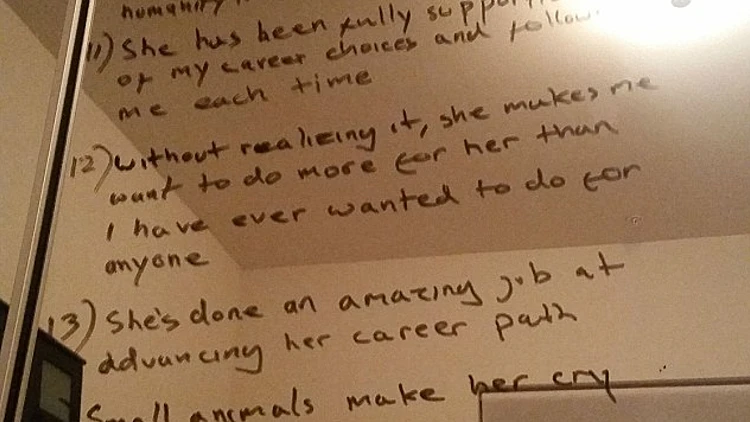 humanity
11) She has been fully
of my career choices and
me each time
12) without realizing it, she makes me
want to do more for her than
I have ever wanted to do for
anyone
13) She's done an amazing job at
advancing her career path
Small animals make her cry